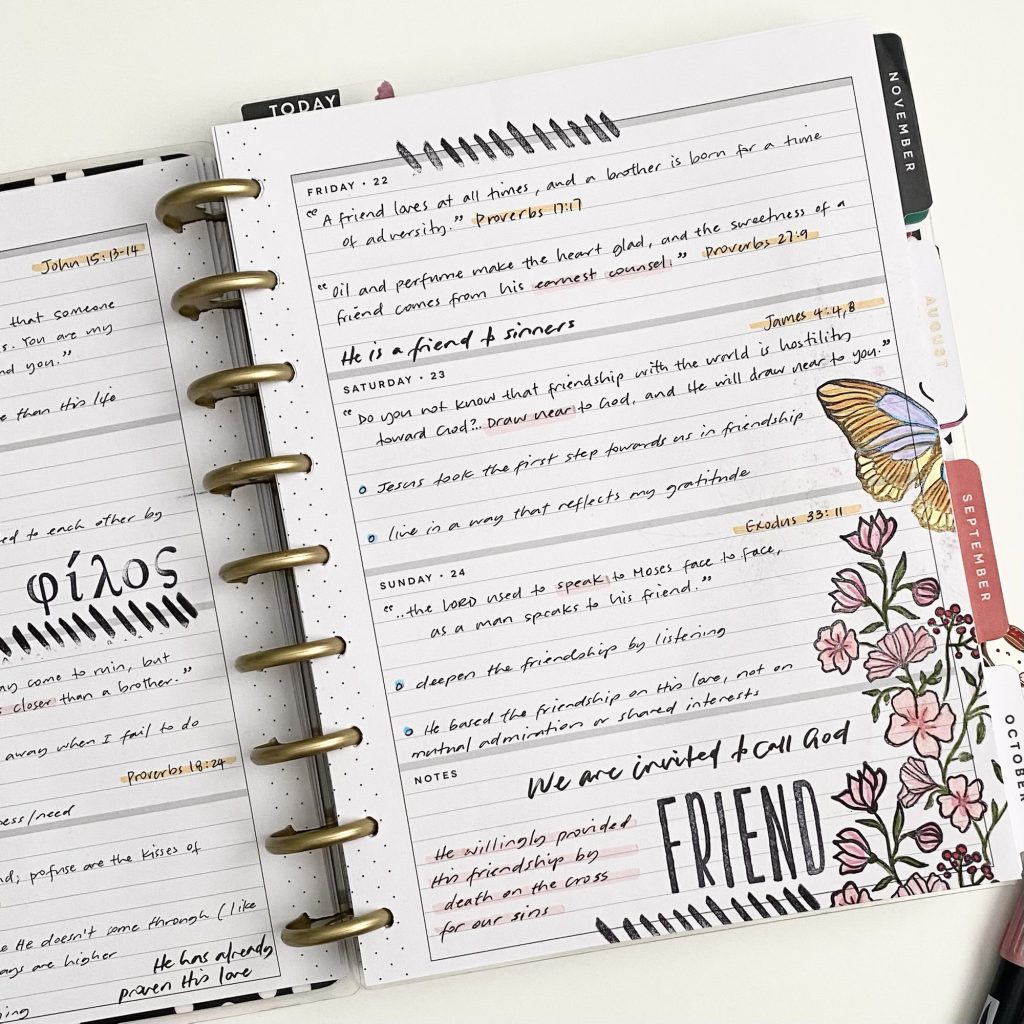 John 15:13-14
that someone
s. You are my
nd you."
e than this life
ed to each other by
φίλος
ay come to ruin, but
s closer than a brother."
away when I fail to do
Proverbs 18:24
ness/need
nd; profuse are the kisses of
e He doesn't come through (like
ays are higher
He has already
proven His love
TODAY
FRIDAY • 22
"A friend loves at all times, and a brother is born for a time
of adversity." Proverbs 17:17
"Oil and perfume make the heart glad, and the sweetness of a
friend comes from his earnest counsel." Proverbs 27:9
He is a friend to sinners
James 4:4,8
SATURDAY • 23
"Do you not know that friendship with the world is hostility
toward God?.. Draw near to God, and He will draw near to you."
Jesus took the first step towards us in friendship
live in a way that reflects my gratitude
Exodus 33:11
SUNDAY • 24
"..the LORD used to speak to Moses face to face,
as a man speaks to his friend."
deepen the friendship by listening
He based the friendship on His love, not on
mutual admiration or shared interests
NOTES
We are invited to call God
FRIEND
He willingly provided
His friendship by
death on the cross
for our sins
NOVEMBER
AUGUST
SEPTEMBER
OCTOBER